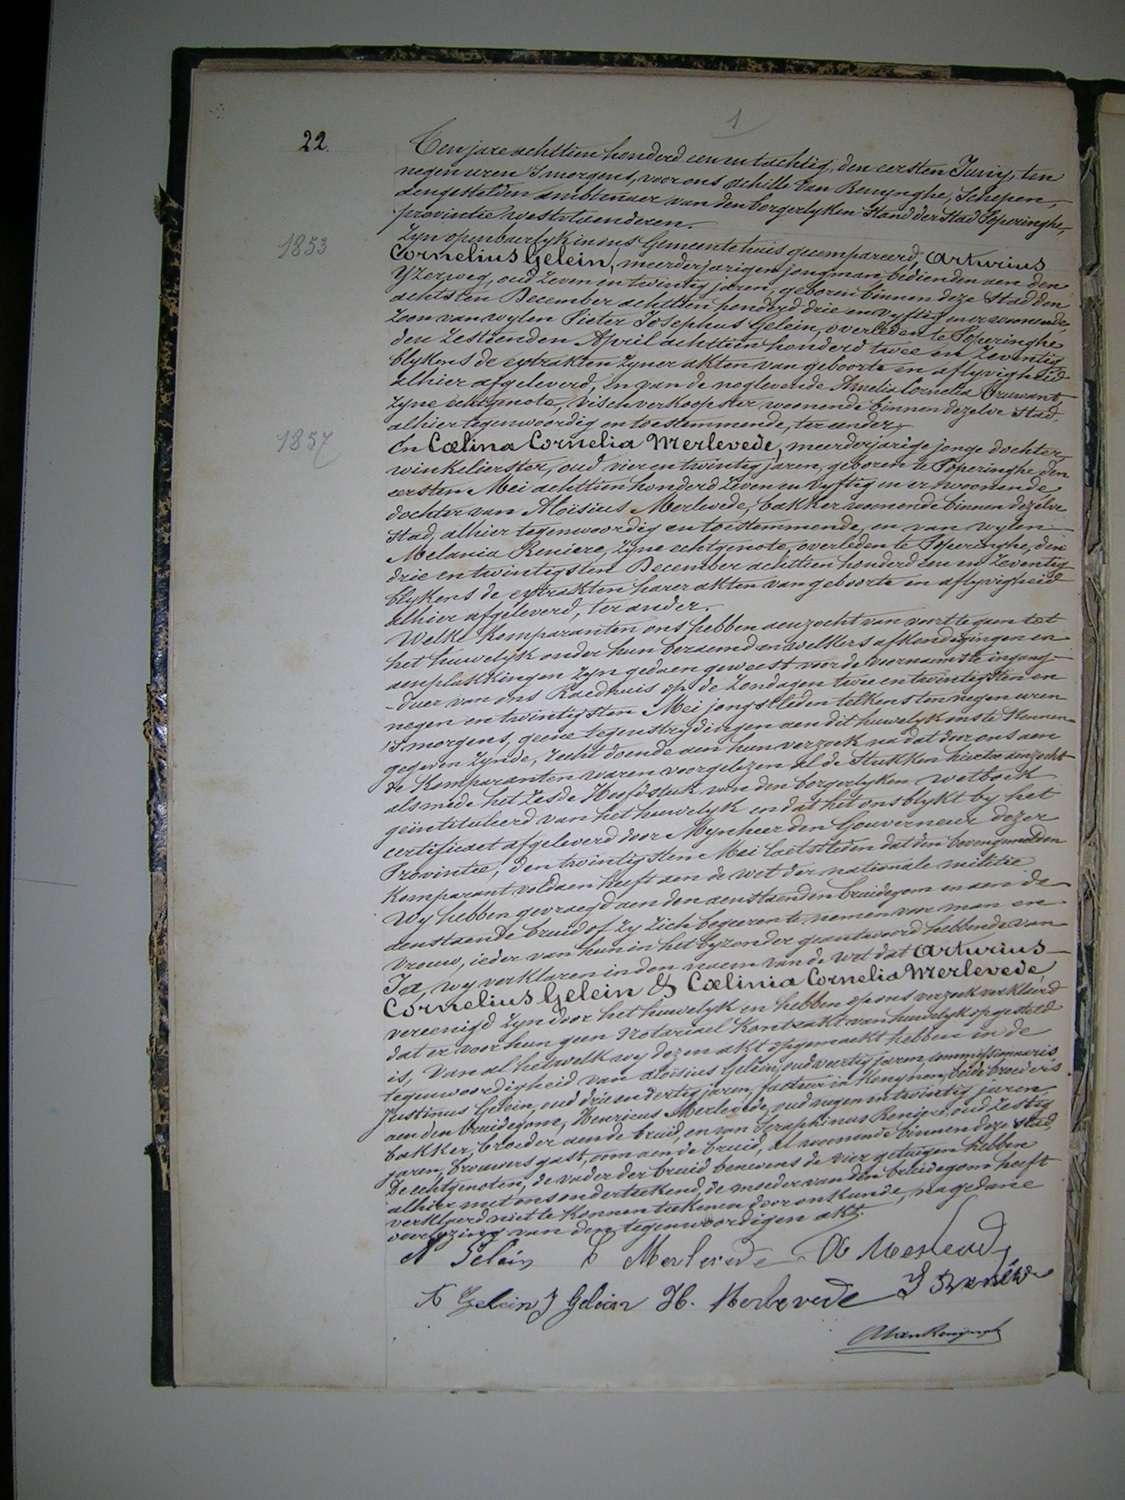 1
22
Ten jare achttien honderd een en tachtig, den eersten Juny, ten
negen uren 's morgens, voor ons Achille Van Renynghe, Schepen,
aengestelden ambtenaer van den borgerlyken Stand der Stad Poperinghe,
provintie Westvlaenderen.
Zyn openbaerlyk in ons Gemeentehuis gecompareerd, Arturius
1853
Cornelius Gelein, meerderjarigen jongman, bedienden aen den
Yzerweg, oud zeven en twintig jaren, geboren binnen deze Stad den
achtsten December achttien honderd drie en vyftig en er woonende,
Zoon van wylen Pieter Josephus Gelein, overleden te Poperinghe
den zestienden April achttien honderd twee en zeventig
blykens de extrakten zyner akten van geboorte en aflyvigheid
alhier afgeleverd, en van de noglevende Amelia Cornelia
zyne echtgenote, vischverkoopster, woonende binnen dezelve Stad,
alhier tegenwoordig en toestemmende, ter eender.
1857
En Cœlina Cornelia Merlevede, meerderjarige jonge dochter,
winkelierster, oud vier en twintig jaren, geboren te Poperinghe den
eersten Mei achttien honderd zeven en vyftig en er woonende
dochter van Aloisius Merlevede, bakker woonende binnen dezelve
Stad, alhier tegenwoordig en toestemmende, en van wylen
Melania Reniere, zyne echtgenote, overleden te Poperinghe, den
drie en twintigsten December achttien honderd een en zeventig
blykens de extrakten harer akten van geboorte en aflyvigheid
alhier afgeleverd, ter ander.
Welke Komparanten ons hebben aenzocht van voort te gaen tot
het huwelyk onder hun beraemd en welkers afkondigingen en
aenplakkingen zyn gedaen geweest voor de voornaamste ingang-
-duer van ons Raedhuis op de Zondagen twee en twintigsten en
negen en twintigsten Mei jongstleden telkens ten negen uren
's morgens, geene tegenstrydingen aen dit huwelyk ons te kennen
gegeven zynde, recht doende aen hun verzoek na dat door ons aen
de Komparanten waren voorgelezen al de Stukken hiertoe aenzocht
alsmede het zesde Hoofdstuk van den borgerlyken wetboek
geïntituleerd van het huwelyk en dat het ons blykt by het
certificaet afgeleverd door Mynheer den Gouverneur dezer
Provintie, den twintigsten Mei laetstleden dat den bovengemelden
Komparant voldaen heeft aen de wet der nationale militie
Wy hebben gevraegd aen den aenstaenden bruidegom en aen de
aenstaende bruid of zy zich begeeren te nemen voor man en
vrouw, ieder van hun in het byzonder geantwoord hebbende van
Ja, wy verklaren in den naem van de wet dat Arturius
Cornelius Gelein & Cœlinia Cornelia Merlevede,
vereenigd zyn door het huwelyk en hebben op ons verzoek verklaerd
dat er voor hun geen Notariael Kontrakt van huwelyk opgesteld
is, Van al hetwelk wy dezen akt opgemaekt hebben in de
tegenwoordigheid van Aloisius Gelein, oud veertig jaren, commissionnaris
Justinus Gelein, oud drie en dertig jaren, facteur in beide broeders
aen den bruidegom, Henricus Merlevede, oud negen en twintig jaren
bakker, broeder aen de bruid, en van Seraphinus Reniere, oud zestig
jaren, brouwersgast, oom aen de bruid, al woonende binnen deze Stad
De echtgenoten, de vader der bruid benevens de vier getuigen hebben
alhier met ons onderteekend, de moeder van den bruidegom heeft
verklaerd niet te konnen teekenen door onkunde, na gedane
voorlezing van den tegenwoordigen akt.
A Gelein C Merlevede
A Gelein J Gelein H. Merlevede
A Van Renynghe